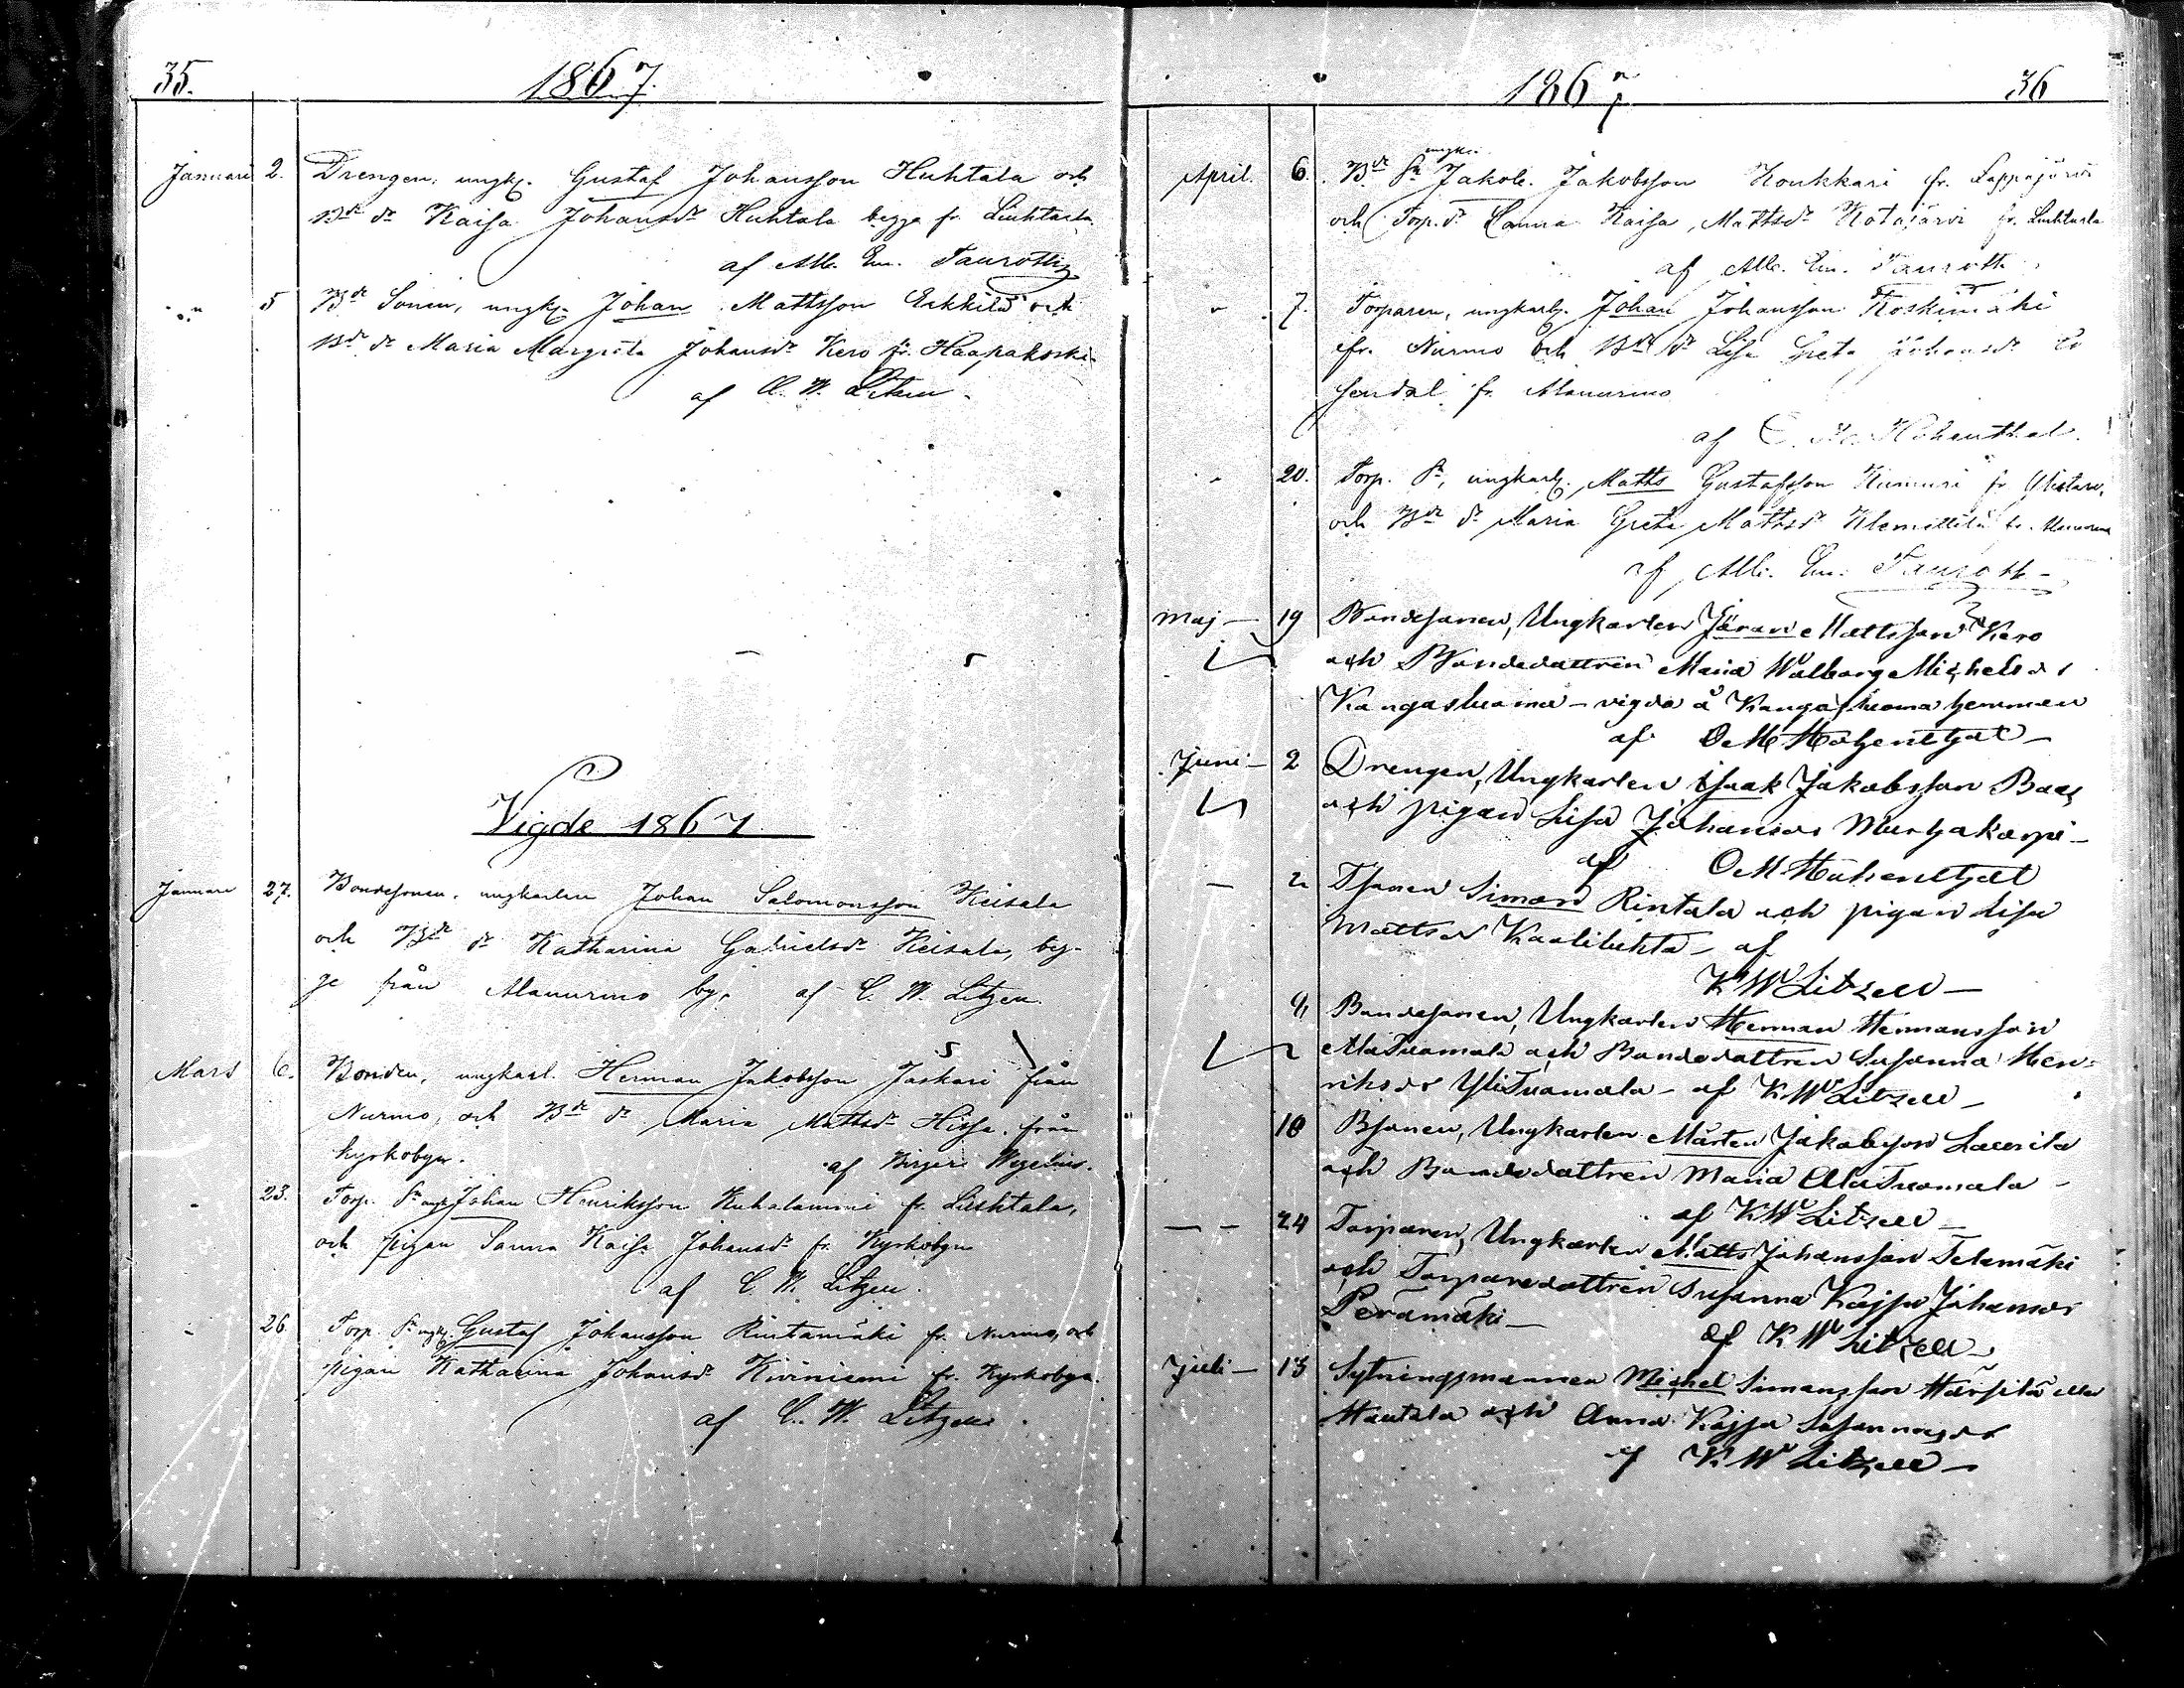 35. 1867.
Januari 2. Drengen, ungk. Gustaf Johansson Huhtala och
Bde dr Kaisa Johansdr Huhtala begge fr. Liuhtarla
af Alb. Em. Tauroth
" 5 Bde Sonen, ungk. Johan Mattsson Erkkilä och
Bde dr Maria Margreta Johansdr Kero fr. Haapakoski
af C. W. Litzen.
Vigde 1867
Januari 27. Bondesonen, ungkarlen Johan Salomonsson Keisala
och Bde dr Katharina Gabrielsdr Keisala, beg-
ge från Alanurmo by, af C. W. Litzen.
Mars 6. Bonden, ungkarl. Herman Jakobsson Jaskari från
Nurmo, och Bde dr Maria Mattsdr Hissa, från
kyrkobyn. af Birger Wegelius.
- 23. Torp. Sn ungk Johan Henriksson Kuhalammi fr. Liuhtala,
och pigan Sanna Kaisa Johansdr fr. Kyrkobyn
af C. W. Litzen.
- 26. Torp. Sn ungk. Gustaf Johansson Rintamäki fr. Nurmo, och
pigan Katharina Johansdr Kiviniemi fr. Kyrkobyn.
af C. W. Litzen.
1867 36
ungk.
April. 6. Bde Sn Jakob Jakobsson Koukkari fr. Lappajärvi
och Torp. dr Sanna Kaisa, Mattsdr Kotajärvi fr. Liuhtarla
af Alb. Em. Tauroth
" 7. Torparen, ungkarl. Johan Johansson Koskimäki
fr. Nurmo och Bde dr Lisa Greta Johansdr
fr. Alanurmo
af O. M. Hohenthal.
- 20. Torp. Sn, ungkarl. Matts Gustafsson fr Ylistaro,
och Bde dr Maria Greta Mattsdr Klemettilä fr. Alanurmo
af Alb. Em. Tauroth -
Maj - 19 Bondesonen, Ungkarlen Jöran Mattsson Kero
och Bondedottren Maria Walborg Michelsdr
Kangasluoma - vigda å Kangasluoma hemman
af O M Hohenthal -
Juni - 2 Drengen, Ungkarlen Isaak Jakobsson
och pigan Lisa Johansdr
af O M Hohenthal
- 2 Tsonen Simon Rintala och pigan Lisa
Mattsdr - af
K W Litzell -
9 Bondesonen, Ungkarlen Herman Hermansson
AlaTuomala och Bondedottren Susanna Hen=
riksdr YliTuomala - af K W Litzell -
10 Bsonen, Ungkarlen Mårten Jakobsson Laurila
och Bondedottren Maria AlaTuomala -
af K W Litzell -
- - 24 Torparen, Ungkarlen Matts Johansson Telamäki
och Torparedottren Susanna Kajsa Johansdr
Perämäki -
af K W Litzell -
Juli - 13 Sytningsmannen Michel Simonsson Härsilä eller
Hautala och Anna Kajsa
af K W Litzell -